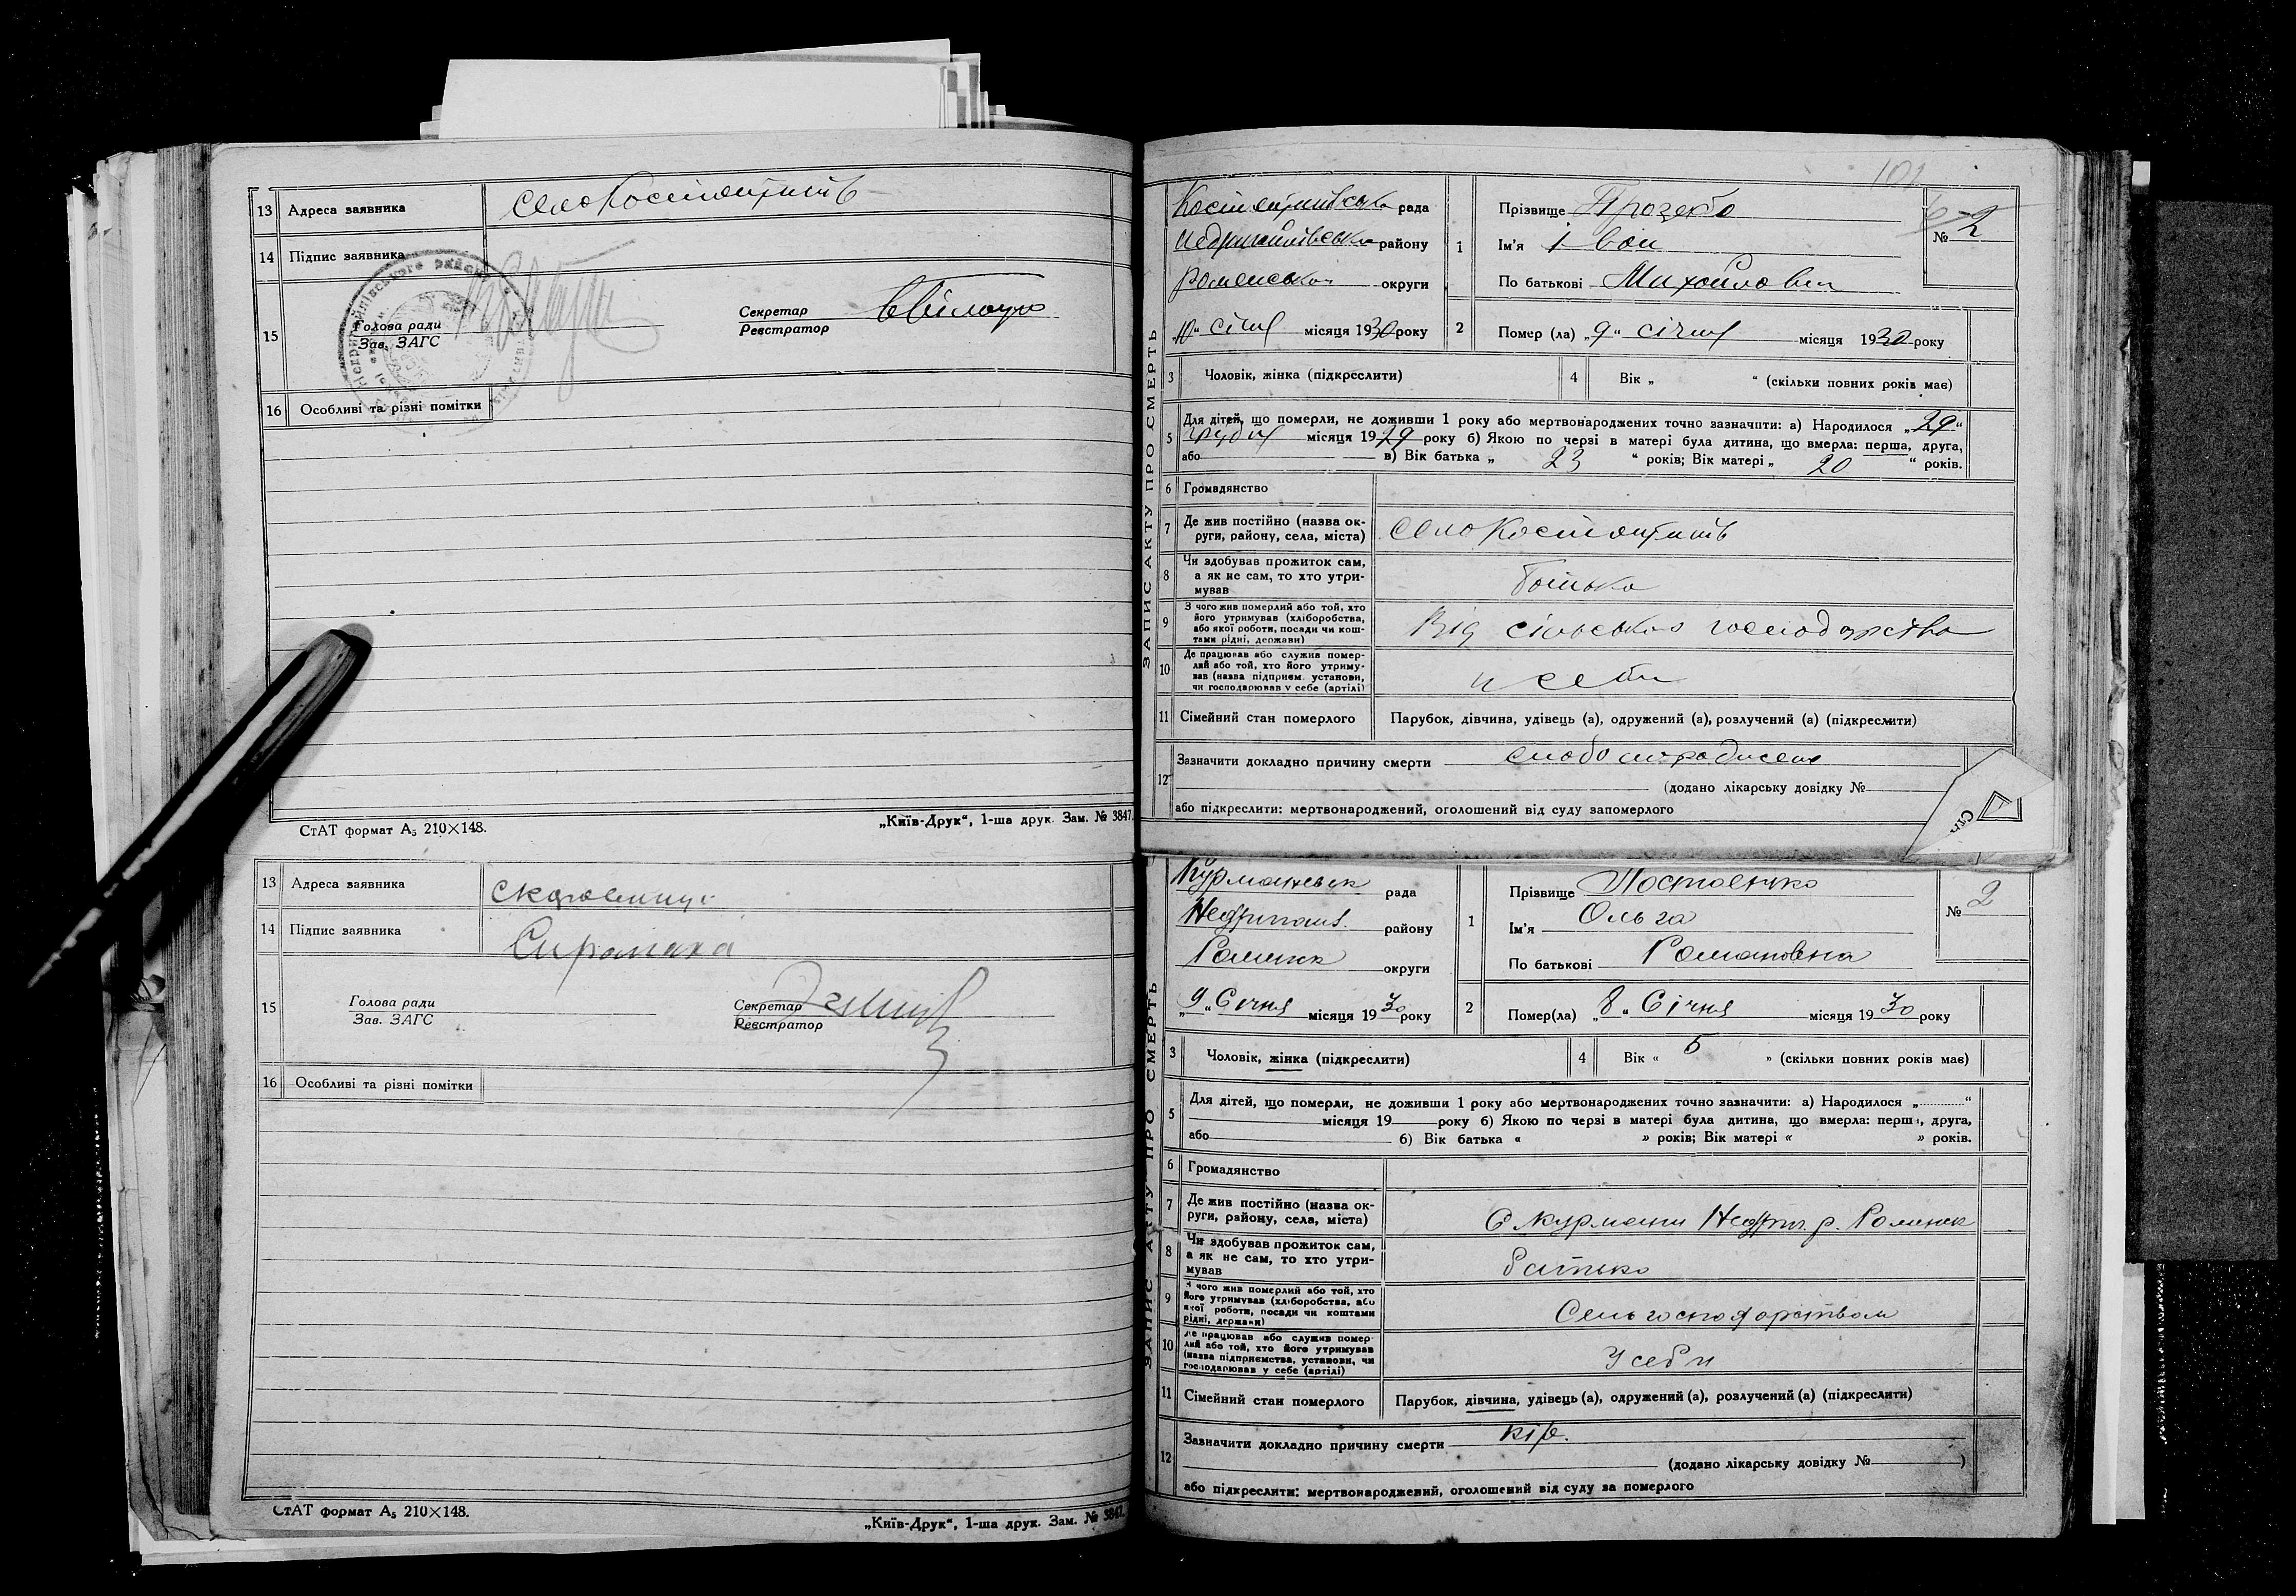 13 Адреса заявника село Костянтинів
14 Підпис заявника
15 Голова ради
Зав. ЗАГС
Секретар
Реєстратор
16 Особливі та різні помітки
СтАТ формат А₅ 210×148.
„Київ-Друк“, 1-ша друк. Зам. № 3847.
13 Адреса заявника
14 Підпис заявника
15 Голова ради
Зав. ЗАГС
Секретар
Реєстратор
16 Особливі та різні помітки
СтАТ формат А₅ 210×148.
„Київ-Друк“, 1-ша друк. Зам. № 3847.
101
ЗАПИС АКТУ ПРО СМЕРТЬ
Костянтинівська рада
Недригайлівська району
Роменська округи
„10“ січня місяця 1930 року
1 Прізвище
Ім'я Іван
По батькові Михайлович
№ 2
2 Помер (ла) „9“ січня місяця 1930 року
3 Чоловік, жінка (підкреслити)
4 Вік „ “ (скільки повних років має)
5 Для дітей, що померли, не доживши 1 року або мертвонароджених точно зазначити: а) Народилося „29“
грудня місяця 1929 року б) Якою по черзі в матері була дитина, що вмерла: перша, друга,
або в) Вік батька „ 23 “ років; Вік матері „ 20 “ років.
6 Громадянство
7 Де жив постійно (назва ок-
руги, району, села, міста) село Костянтинів
8 Чи здобував прожиток сам,
а як не сам, то хто утри-
мував батько
9 З чого жив померлий або той, хто
його утримував (хліборобства,
або якої роботи, посади чи кош-
тами рідні, держави) Від сільського господарства
10 Де працював або служив помер-
лий або той, хто його утриму-
вав (назва підприєм. установи,
чи господарював у себе (артілі) у себе
11 Сімейний стан померлого Парубок, дівчина, удівець (а), одружений (а), розлучений (а) (підкреслити)
12 Зазначити докладно причину смерти
(додано лікарську довідку №
або підкреслити: мертвонароджений, оголошений від суду запомерлого
ЗАПИС АКТУ ПРО СМЕРТЬ
рада
району
округи
„9“ Січня місяця 1930 року
1 Прізвище
Ім'я Ольга
По батькові Романовна
№ 2
2 Помер(ла) „8“ Січня місяця 1930 року
3 Чоловік, жінка (підкреслити)
4 Вік « 5 » (скільки повних років має)
5 Для дітей, що померли, не доживши 1 року або мертвонароджених точно зазначити: а) Народилося „ “
місяця 19 року б) Якою по черзі в матері була дитина, що вмерла: перша, друга,
або б) Вік батька « » років; Вік матері « » років.
6 Громадянство
7 Де жив постійно (назва ок-
руги, району, села, міста) С. Курмани Недриг. р. Роменск
8 Чи здобував прожиток сам,
а як не сам, то хто утри-
мував батько
9 З чого жив померлий або той, хто
його утримував (хліборобства, або
якої роботи, посади чи коштами
рідні, держави) Сельгосподарством
10 Де працював або служив помер-
лий або той, хто його утримував
(назва підприємства, установи, чи
господарював у себе (артілі) У себя
11 Сімейний стан померлого Парубок, дівчина, удівець (а), одружений (а), розлучений (а) (підкреслити)
12 Зазначити докладно причину смерти кір.
(додано лікарську довідку № )
або підкреслити: мертвонароджений, оголошений від суду за померлого